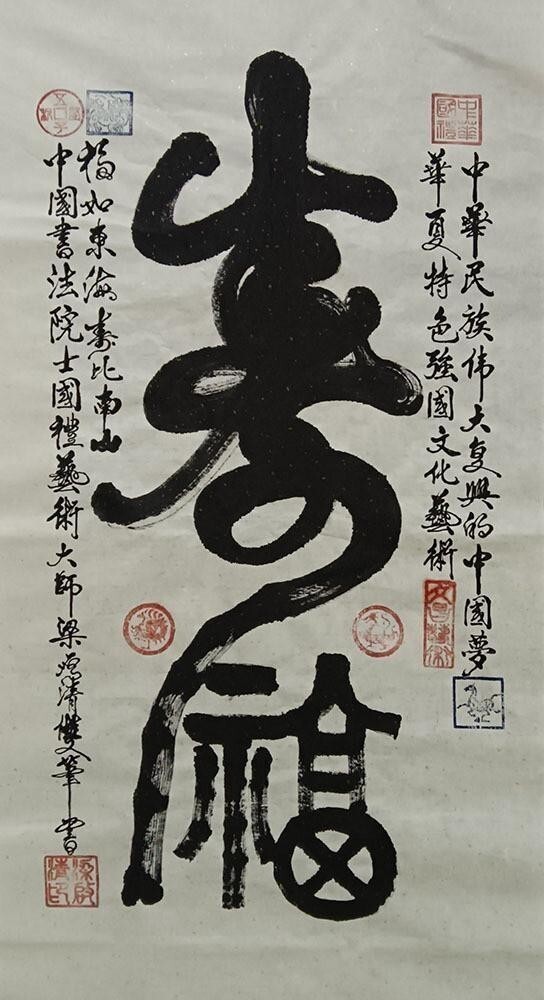 中華國禮
中華民族伟大复興的中國夢
華夏特色強國文化藝術
壽福
福如東海壽比南山
中國書法院士國禮藝術大師梁啟清雙筆書
梁啟清印